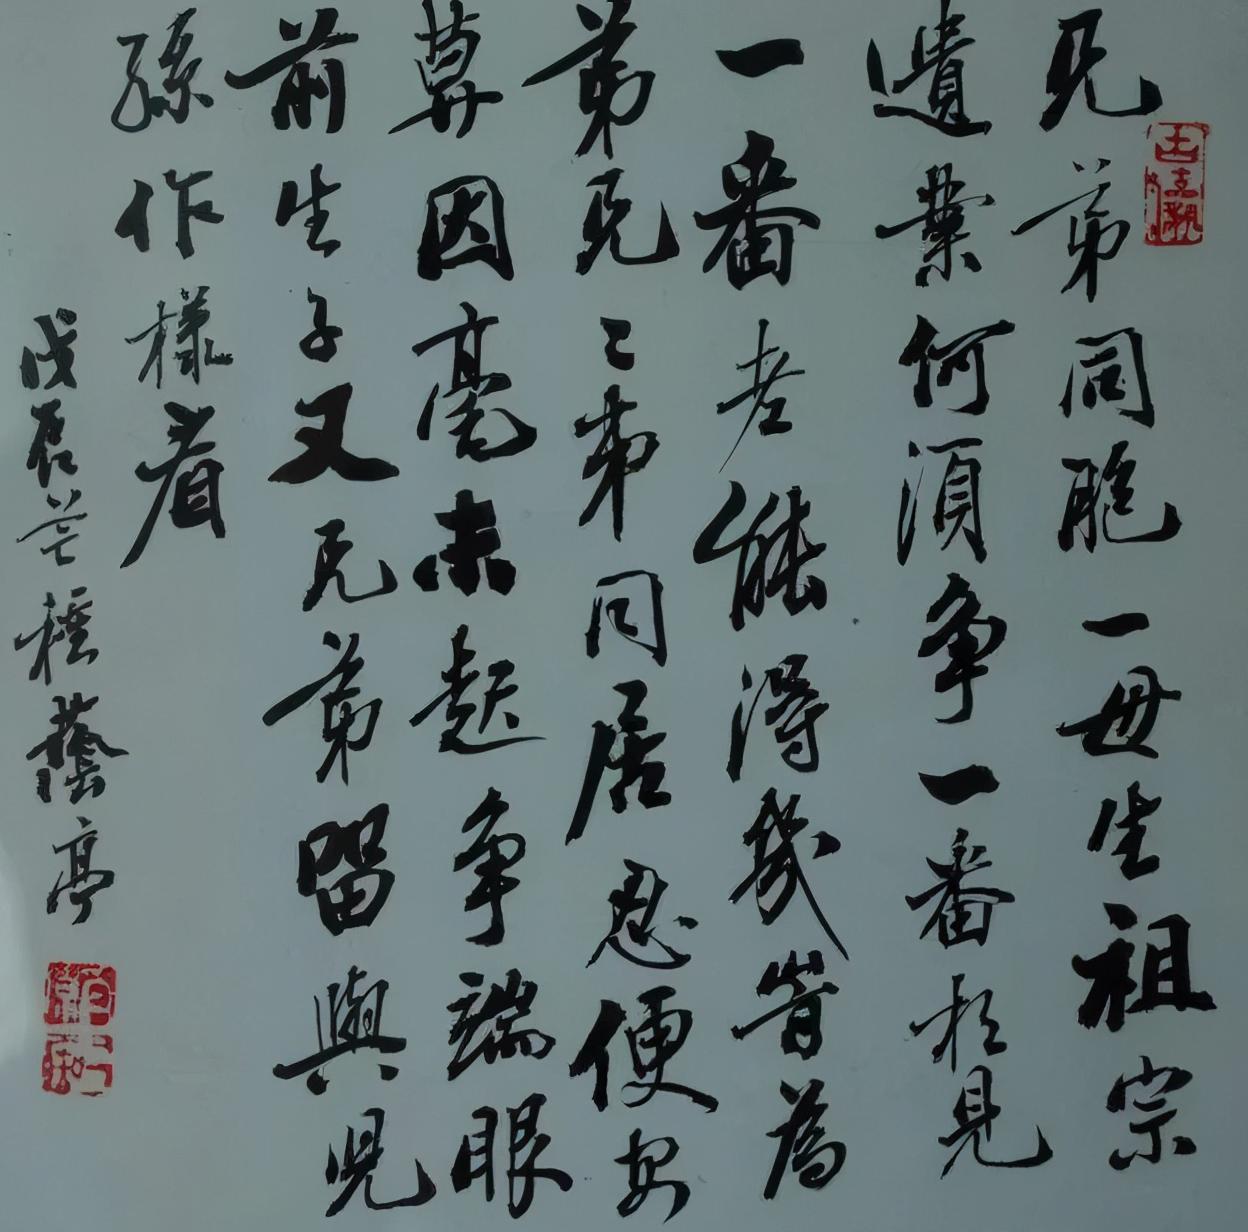 兄弟同胞一母生祖宗
遺業何須争一番相見
一番老能得幾旹為
弟兄〻弟同居忍便安
莫因毫末起争端眼
前生子又兄弟留與兒
孫作樣看
戊辰芒種藝亭